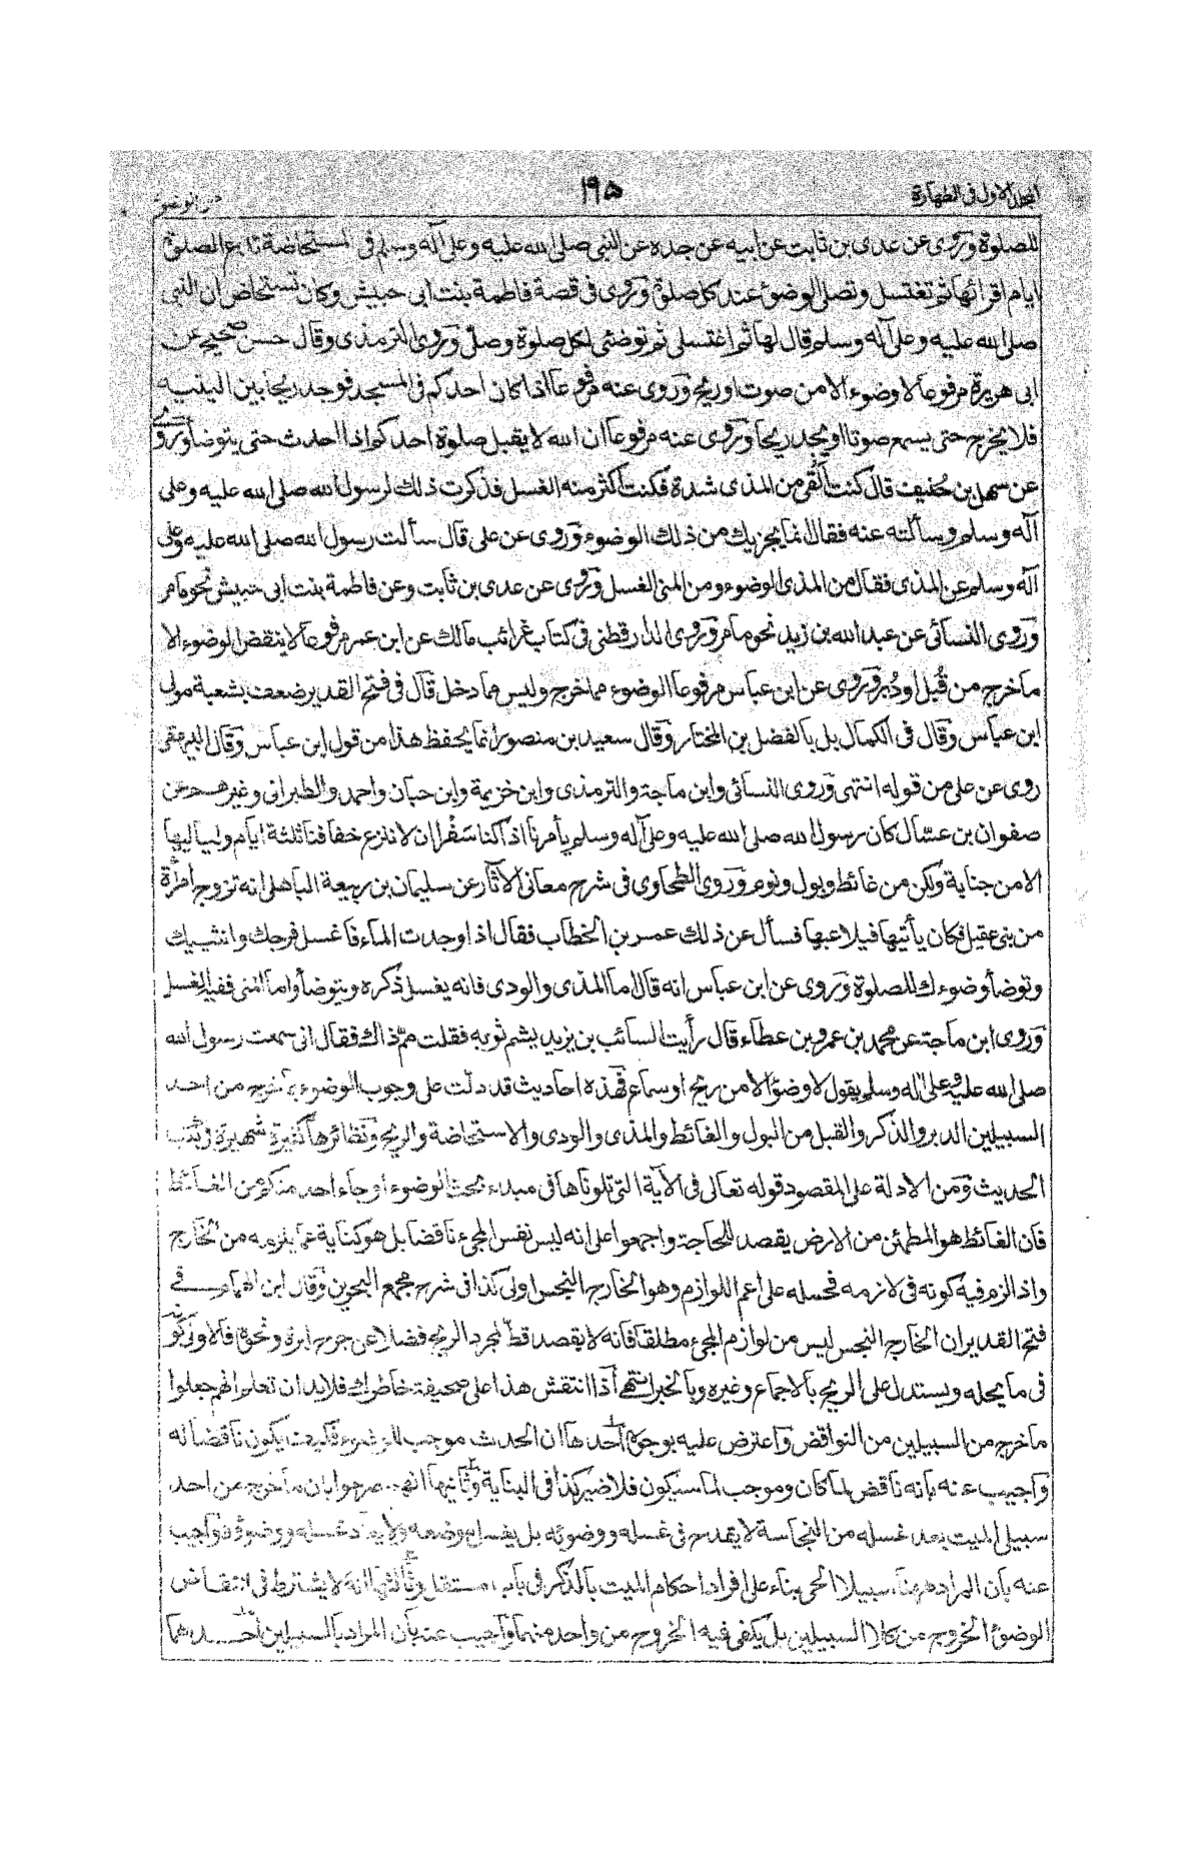 المجلد الاول فى الطهارة
١٩٥
للصلوة وروى عن عدى بن ثابت عن ابيه عن جده عن النبى صلى الله عليه وعلى آله وسلم فى المستحاضة تدع الصلوة
ايام اقرائها ثم تغتسل وتصلى والوضوء عند كل صلوة وروى فى قصة فاطمة بنت ابى حبيش وكان تستحاض ان النبى
صلى الله عليه وعلى آله وسلم قال لها ثم اغتسلى ثم توضئى لكل صلوة وصلى وروى الترمذى وقال حسن صحيح عن
ابى هريرة مرفوعا لا وضوء الا من صوت او ريح وروى عنه مرفوعا اذا كان احدكم فى المسجد فوجد ريحا بين اليتيه
فلا يخرج حتى يسمع صوتا او يجد ريحا وروى عنه مرفوعا ان الله لا يقبل صلوة احدكم اذا احدث حتى يتوضأ وروى
عن سهل بن حنيف قال كنت ألقى من المذى شدة فكنت أكثر منه الغسل فذكرت ذلك لرسول الله صلى الله عليه وعلى
آله وسلم وسألته عنه فقال انما يجزيك من ذلك الوضوء وروى عن على قال سألت رسول الله صلى الله عليه وعلى
آله وسلم عن المذى فقال من المذى الوضوء ومن المنى الغسل وروى عن عدى بن ثابت وعن فاطمة بنت ابى حبيش نحو ما مر
وروى النسائى عن عبد الله بن زيد نحو ما مر وروى الدارقطنى فى كتاب غرائب مالك عن ابن عمر مرفوعا لا ينقض الوضوء الا
ما خرج من قُبل او دُبر وروى عن ابن عباس مرفوعا الوضوء مما خرج وليس مما دخل قال فى فتح القدير ضعف بشعبة مولى
ابن عباس وقال فى الكمال بل بالفضل بن المختار وقال سعيد بن منصور انما يحفظ هذا من قول ابن عباس وقال البيهقى
روى عن على من قوله انتهى وروى النسائى وابن ماجة والترمذى وابن خزيمة وابن حبان واحمد والطبرانى وغيرهم عن
صفوان بن عسّال كان رسول الله صلى الله عليه وعلى آله وسلم يأمرنا اذا كنا سَفْرا ان لا ننزع خفافنا ثلثة ايام ولياليها
الا من جنابة ولكن من غائط وبول ونوم وروى الطحاوى فى شرح معانى الآثار عن سليمان بن ربيعة الباهلى انه تزوج امرأة
من بنى عقيل فكان يأتيها فيلاعبها فسأل عن ذلك عمر بن الخطاب فقال اذا وجدت الماء فاغسل فرجك وانثييك
وتوضأ وضوءك للصلوة وروى عن ابن عباس انه قال اما المذى والودى فانه يغسل ذكره ويتوضأ واما المنى ففيه الغسل
وروى ابن ماجة عن محمد بن عمرو بن عطاء قال رأيت السائب بن يزيد يشم ثوبه فقلت ممّ ذاك فقال انى سمعت رسول الله
صلى الله عليه وعلى آله وسلم يقول لا وضوء الا من ريح او سماع فهذه احاديث قد دلت على وجوب الوضوء بما خرج من احد
السبيلين الدبر والذكر والقبل من البول والغائط والمذى والودى والاستحاضة والريح ونظائرها كثيرة شهيرة وكتب
الحديث ومن الادلة على المقصود قوله تعالى فى الآية التى تلوناها فى مبدء بحث الوضوء او جاء احد منكم من الغائط
فان الغائط هو المطمئن من الارض يقصد للحاجة واجمعوا على انه ليس نفس المجىء ناقضا بل هو كناية عما يلزمه من الخارج
واذ الزم فيه كونه فى لازمه فحمله على اعم اللوازم وهو الخارج النجس اولى كذا فى شرح مجمع البحرين وقال ابن الهمام فى
فتح القدير ان الخارج النجس ليس من لوازم المجىء مطلقا فانه لا يقصد قط لمجرد الريح فضلا عن جرح ابرة ونحوه فالاولى كونه
فى ما يحله ويستدل على الريح بالاجماع وغيره وبالخبر انتهى اذا انتقش هذا على صحيفة خاطرك فلا بد ان تعلم انهم جعلوا
ما خرج من السبيلين من النواقض واعترض عليه بوجوه احدها ان الحدث موجب للوضوء فكيف يكون ناقضا له
واجيب عنه بانه ناقض لما كان وموجب لما سيكون فلا ضير كذا فى البناية وثانيها انهم صرحوا بان ما خرج من احد
سبيلى الميت بعد غسله من النجاسة لا يقدح فى غسله ووضوئه بل يغسل موضعه ولا يعاد غسله ووضوءه واجيب
عنه بان المراد ههنا سبيلا الحى بناء على افراد احكام الميت بالذكر فى باب مستقل وثالثها انه لا يشترط فى انتقاض
الوضوء الخروج من كلا السبيلين بل يكفى فيه الخروج من واحد منهما واجيب عنه بان المراد بالسبيلين احدهما